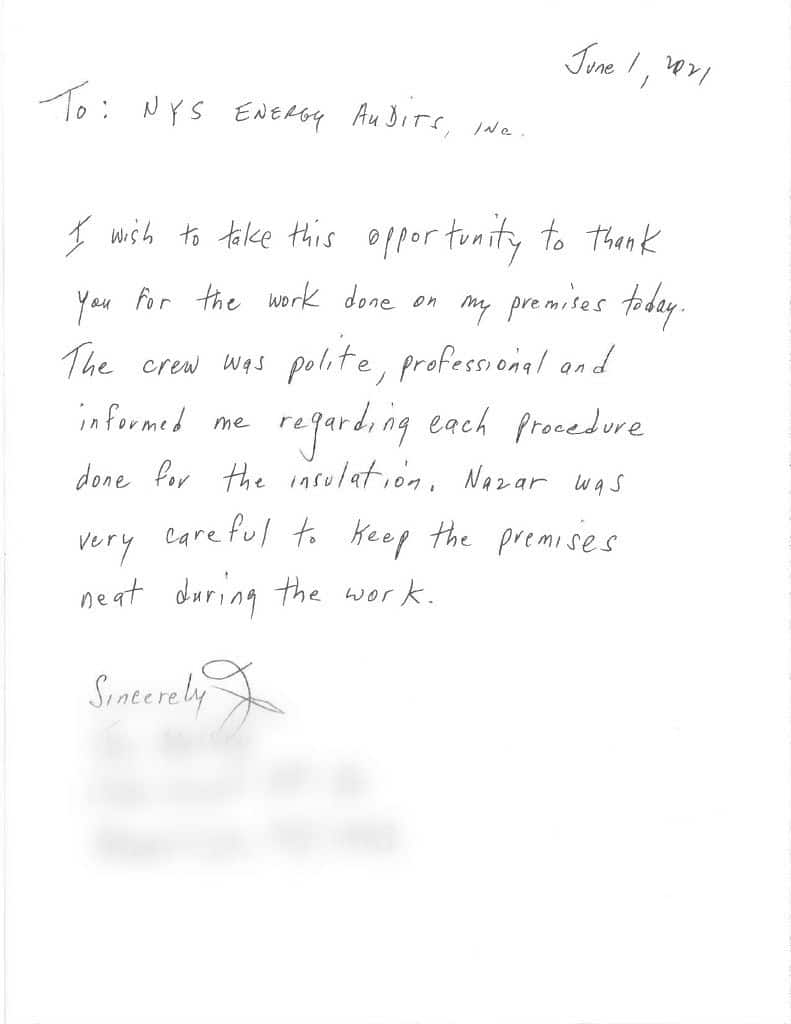 June 1, 2021
To: NYS ENERGY AUDITS, INC.
I wish to take this opportunity to thank
you for the work done on my premises today.
The crew was polite, professional and
informed me regarding each procedure
done for the insulation. Nazar was
very careful to keep the premises
neat during the work.
Sincerely